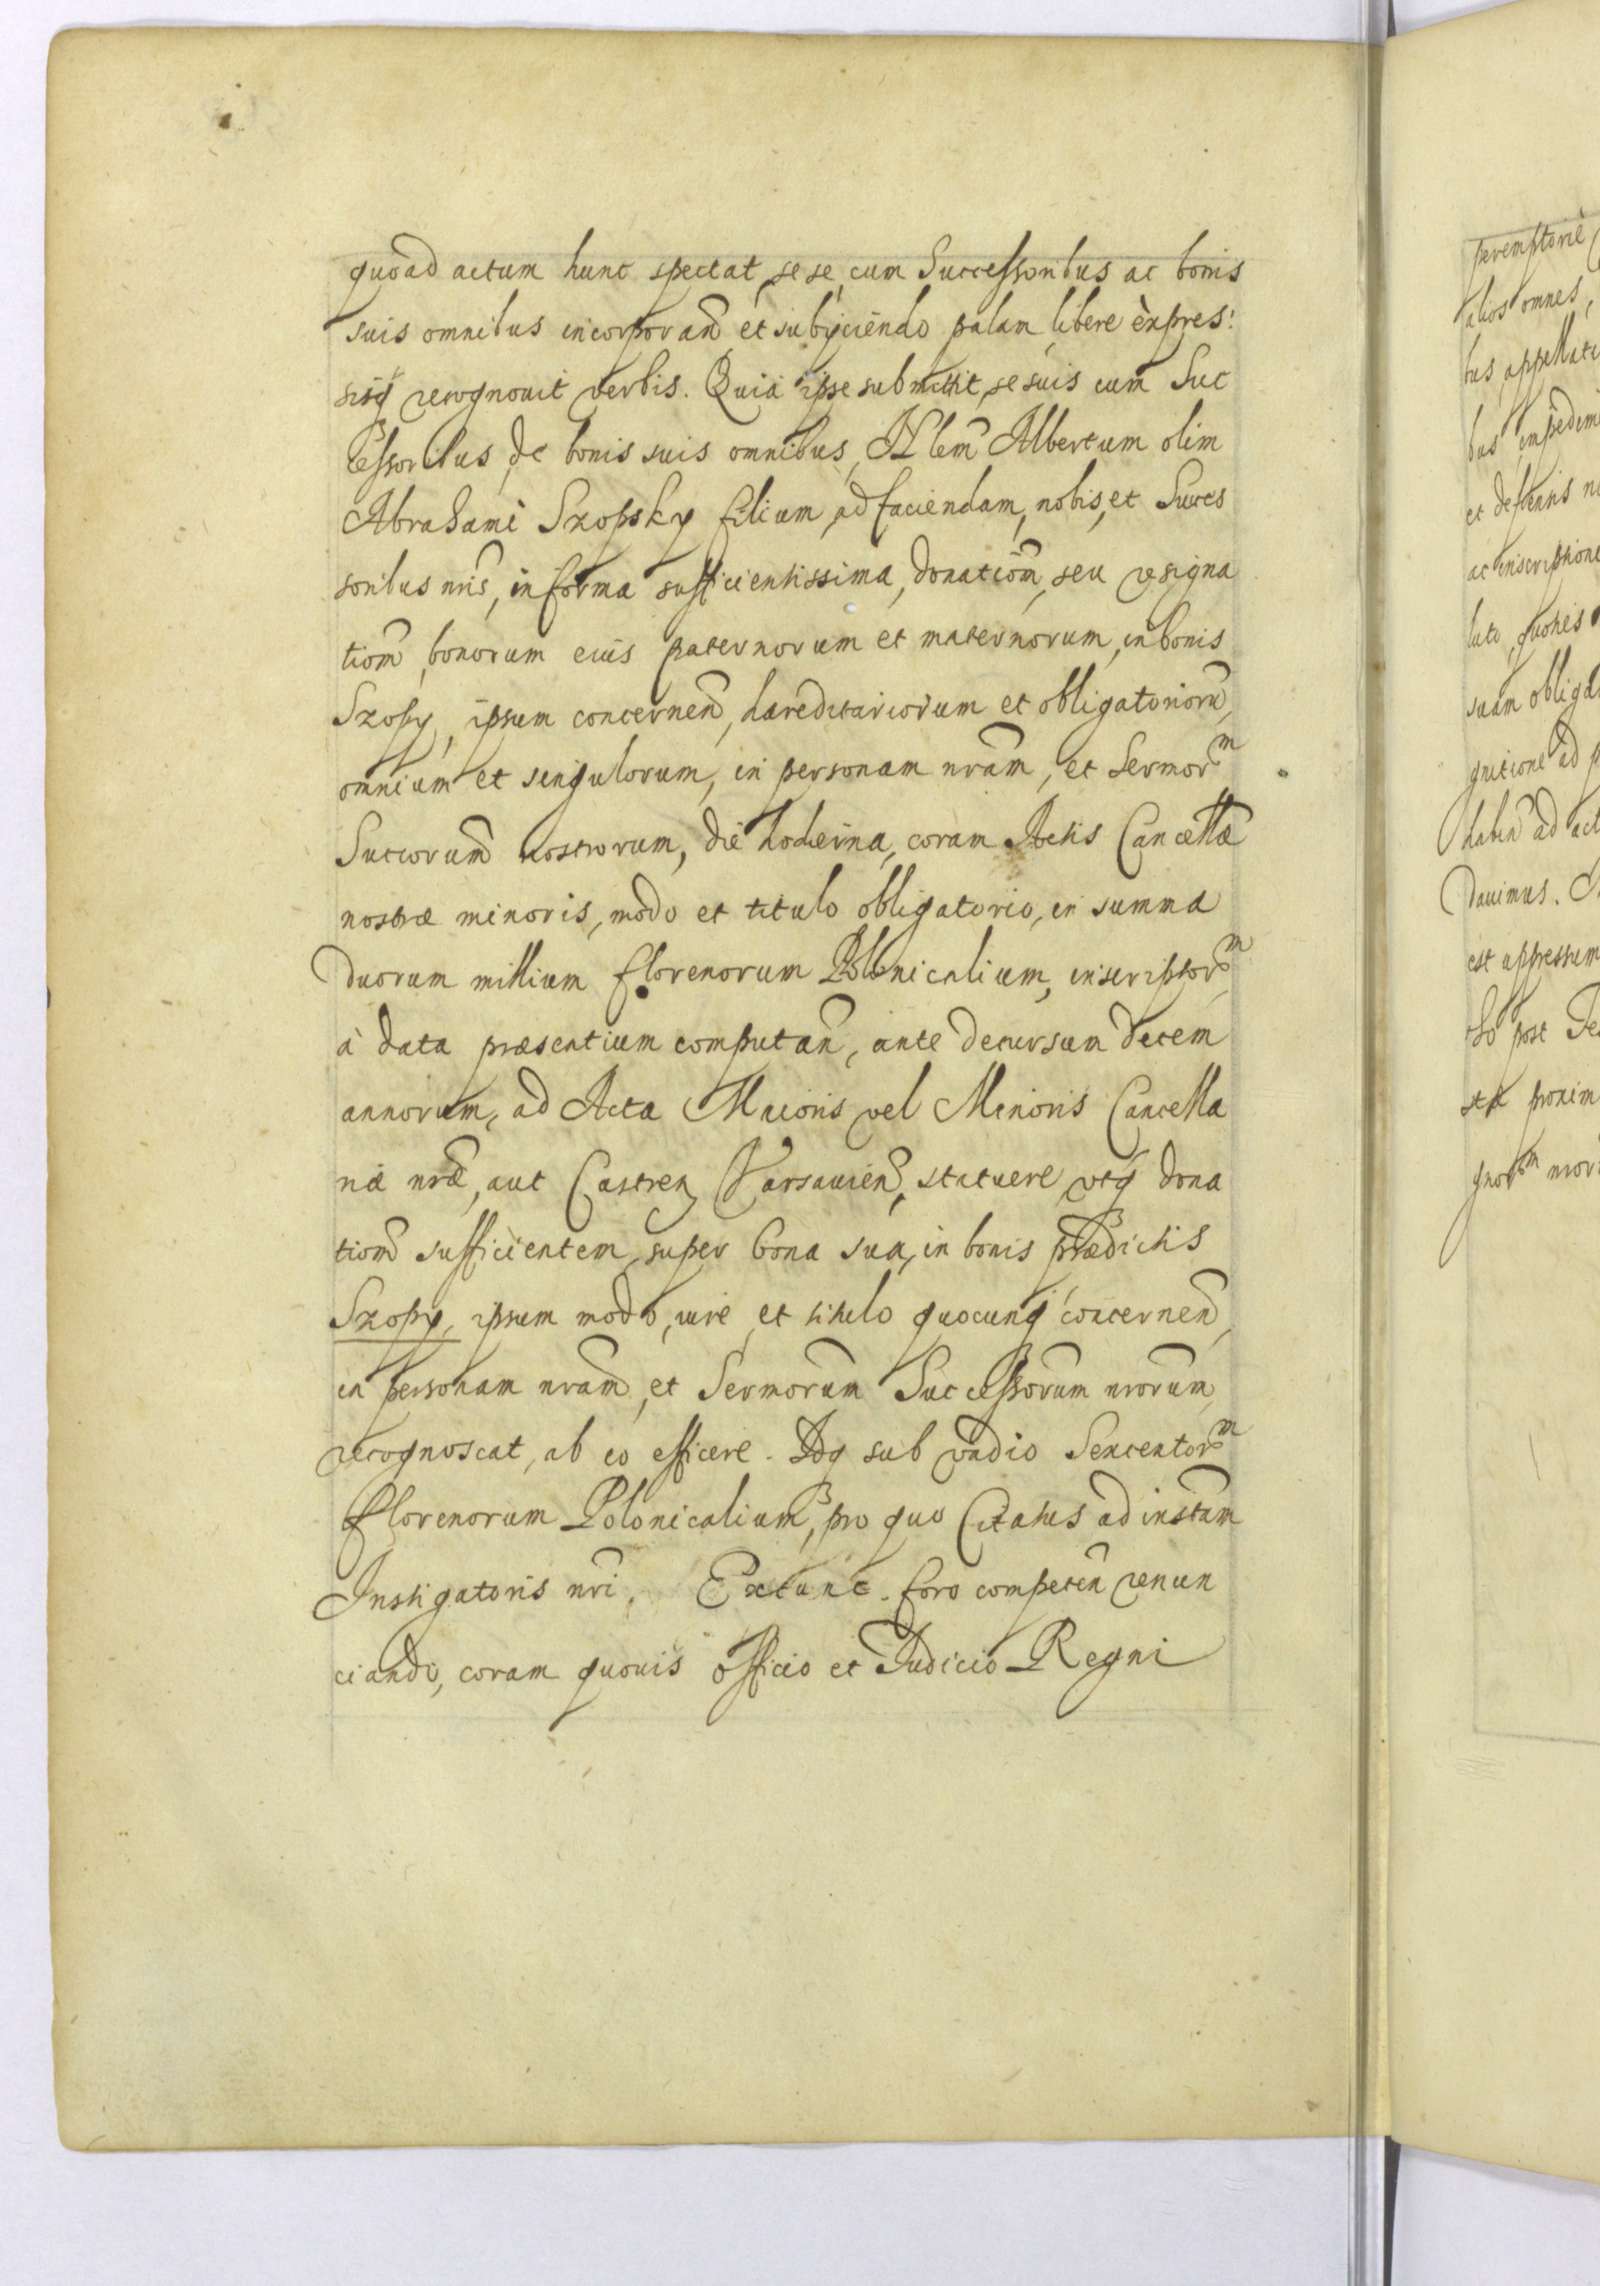 quoad actum hunc spectat, se se, cum Successoribus ac bonis
suis omnibus incorporañ et subÿciendo palam libere expres:
sisq́ recognouit verbis. Quia ipse submittit, se suis cum Suc
cessoribus, de bonis suis omnibus, Nlem̃ Albertum olim
Abrahami Szopsky filium, ad faciendam, nobis, et Succes
soribus nr̃is, in forma sufficientissima, donatiom̃, seu resigna
tiom̃, bonorum eius paternorum et maternorum, in bonis
Szopy, ipsum concerneñ, hæreditariorum et obligatoriorũ,
omnium et singulorum, in personam nr̃am, et Sermorᵐ
Succorum̃ nostrorum, die hodierna, coram Actis Cancellæ
nostræ minoris, modo et titulo obligatorio, in summa
Duorum millium florenorum Polonicalium, inscriptorᵐ,
à data præsentium computañ, ante decursum decem
annorum, ad Acta Maioris vel Minoris Cancella
riæ nr̃æ, aut Castreñ Varsauieñ, statuere, vtq́ dona
tiom̃ sufficientem, super bona sua, in bonis prædictis
Szopy, ipsum modo, iure, et titulo quocunq́ concerneñ,
in personam nr̃am, et Sermorum̃ Successorum̃ nr̃orum,
recognoscat, ab eo efficere. Idq sub vadio Sexcentorᵐ
florenorum Polonicalium, pro quo Citatus ad instam̃
Instigatoris nr̃i. Extunc. foro competeñ renun
ciando, coram quouis officio et Judicio Regni
peremptorie
alios omnes,
bus, appellati
bus impedim
et deffensis n
ac inscriptione
luto, quoties
suam obliga
gnitione ad p
habeñ ad act
Dauimus.
est appressum
post
proxim